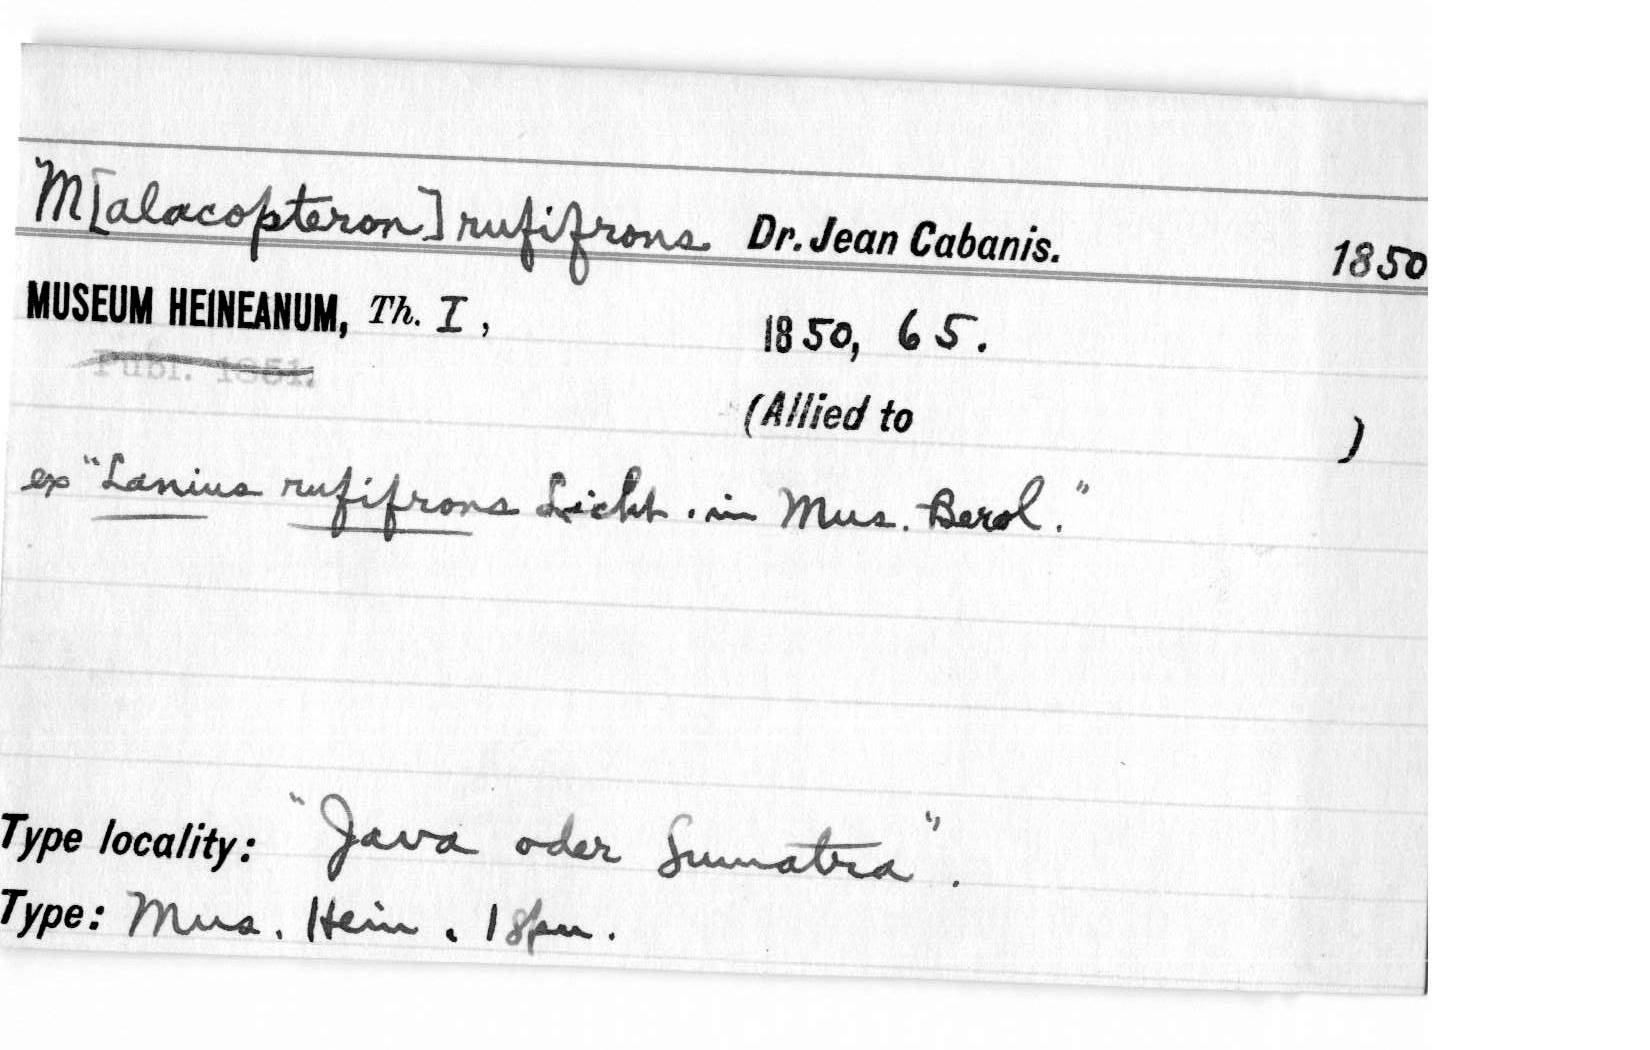 "M[alacopteron] rufifrons Dr. Jean Cabanis. 1850
MUSEUM HEINEANUM, Th. I, 1850, 65.
Publ. 1851.
(Allied to )
ex "Lanius rufifrons Licht. in Mus. Berol."
Type locality: "Java oder Sumatra".
Type: Mus. Hein. 1 spm.